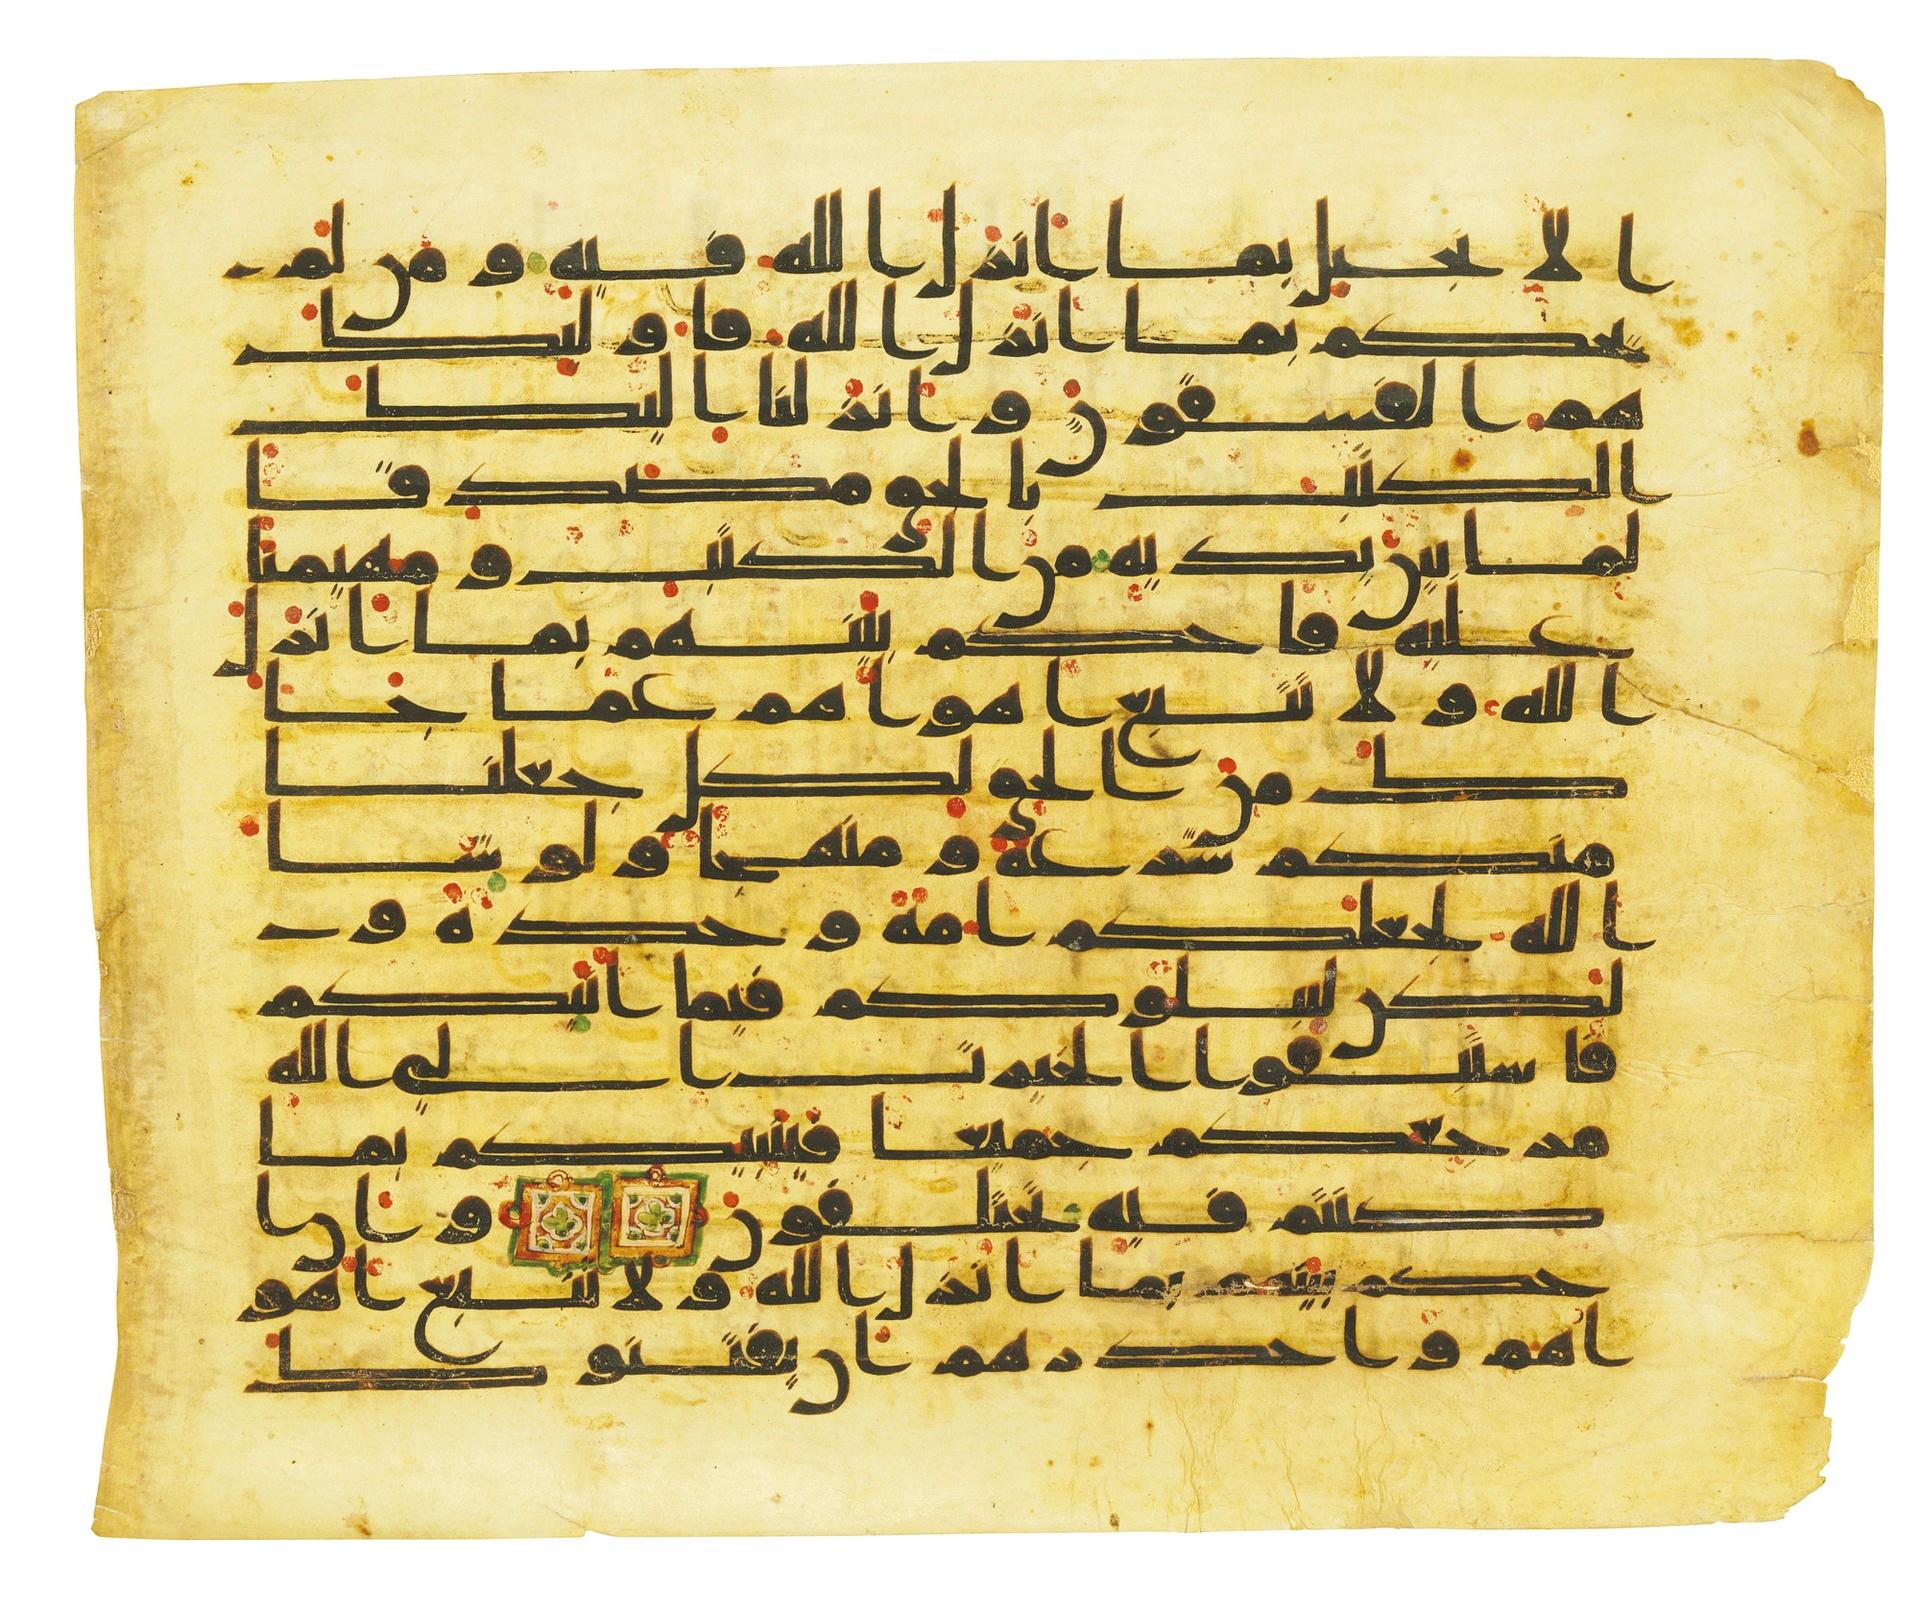 ا لا نجيل بما انزل ا لله فيه و من لم
يحكم بما انزل ا لله فا و ليك
هم ا لفسقون و انز لنا ا ليك
ا لكتب با لحق مصد قا
لما بين يد يه من ا لكتب و مهيمنا
عليه فا حكم بينهم بما انزل
ا لله و لا تتبع ا هوا هم عما جا
ك من ا لحق لكل جعلنا
منكم شر عة و منهجا و لو شا
ا لله لجعلكم ا مة و حد ة و
لكن ليبلو كم فيما اتيكم
فا ستبقوا ا لخير ت ا لى ا لله
مر جعكم جميعا فينبيكم بما
كنتم فيه تختلفون و ان ا
حكم بينهم بما انزل ا لله و لا تتبع ا هو
ا هم و ا حذ ر هم ا ن يفتنو ك